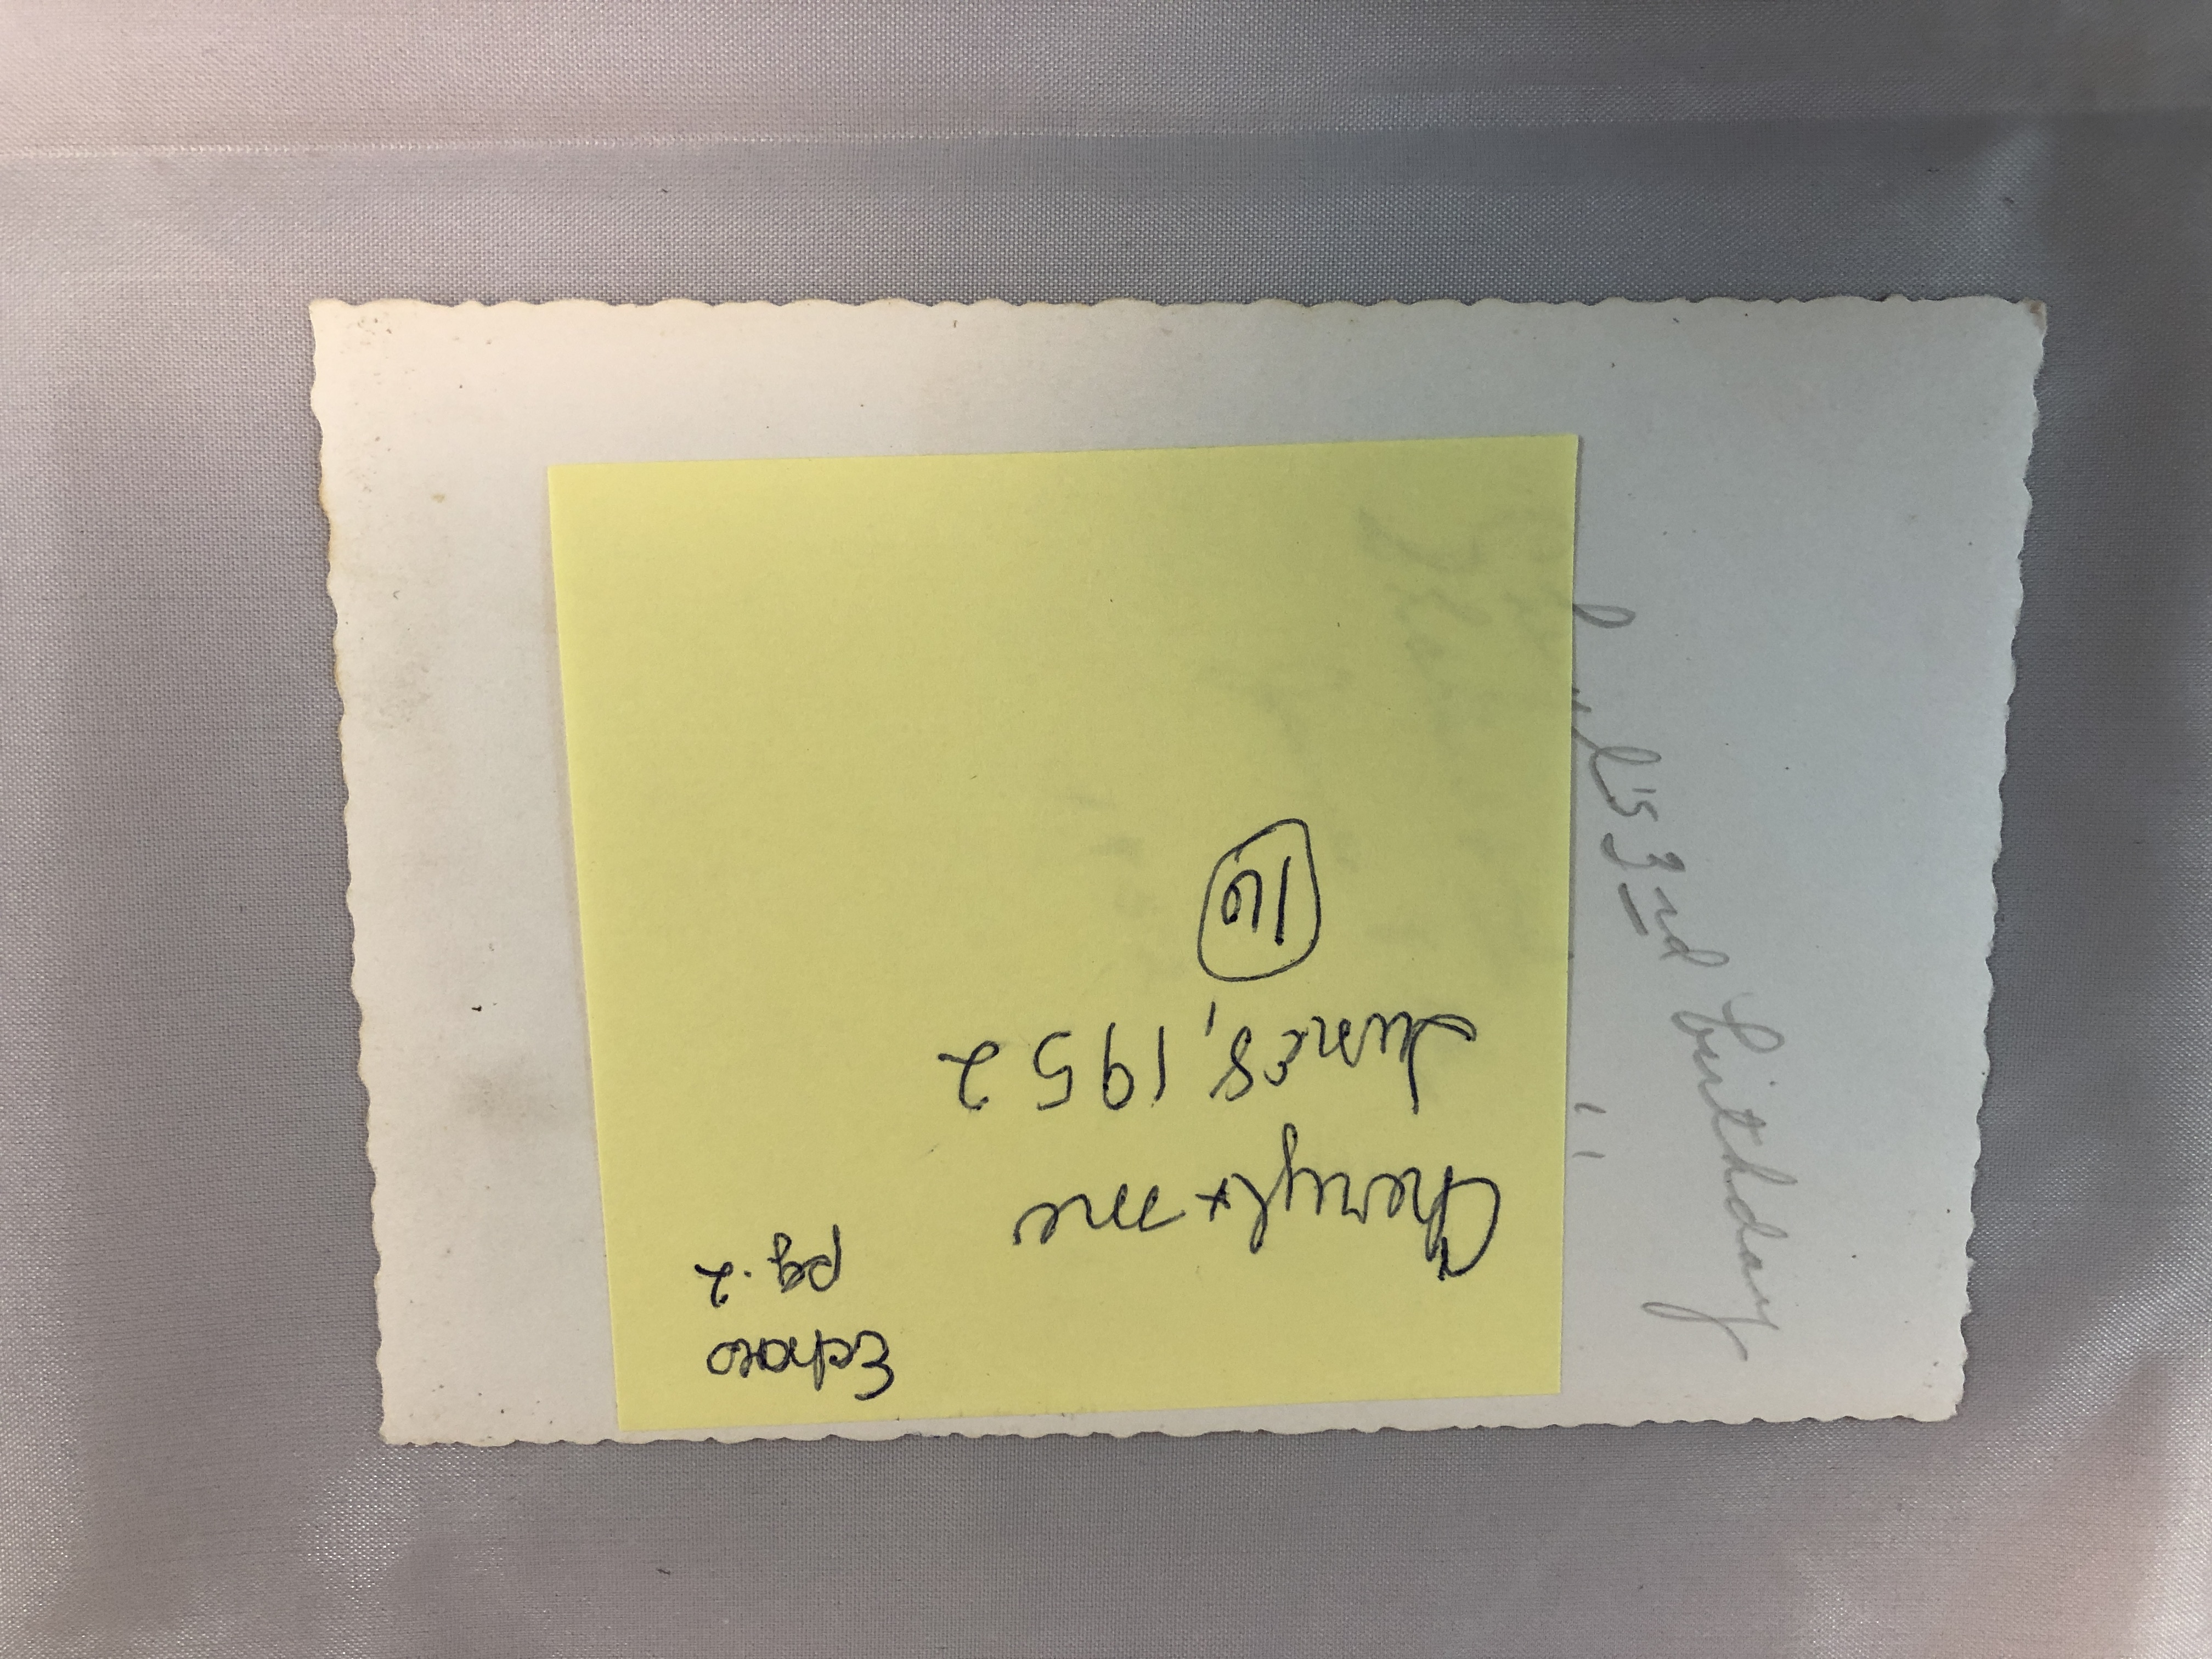 pg. 2
Cheryl + me
June 8, 1952
16
3rd birthday